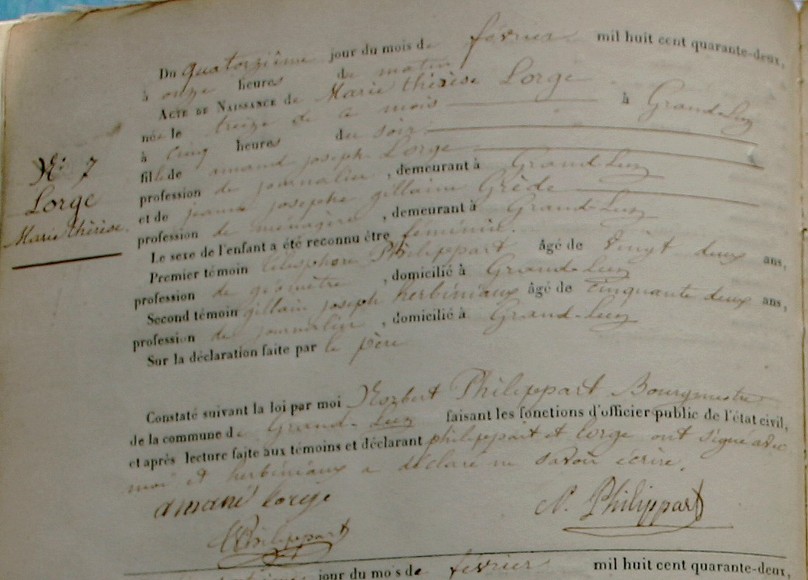 Du quatorzième jour du mois de février mil huit cent quarante-deux,
à onze heures du matin
ACTE DE NAISSANCE de Marie thérèse Lorge
née le treize de ce mois à Grand-Leez
à cinq heures du soir
fille de amand joseph Lorge
profession de journalier, demeurant à Grand Leez
et de jeanne josephe gillaine Grède
profession de ménagère, demeurant à Grand-Leez
Le sexe de l'enfant a été reconnu être féminin.
Premier témoin télesphore Philippart âgé de vingt deux ans,
profession de géomètre, domicilié à Grand-Leez
Second témoin gillain joseph herbiniaux âgé de cinquante deux ans,
profession de journalier, domicilié à Grand-Leez
Sur la déclaration faite par le père
N° 7
Lorge
Marie thérèse
Constaté suivant la loi par moi Norbert Philippart Bourgmestre
de la commune de Grand-Leez faisant les fonctions d'officier public de l'état civil,
et après lecture faite aux témoins et déclarant philippart et lorge ont signé avec
moi et herbiniaux a déclaré ne savoir écrire.
amand lorge
N. Philippart
Philippart
jour du mois de février mil huit cent quarante-deux,